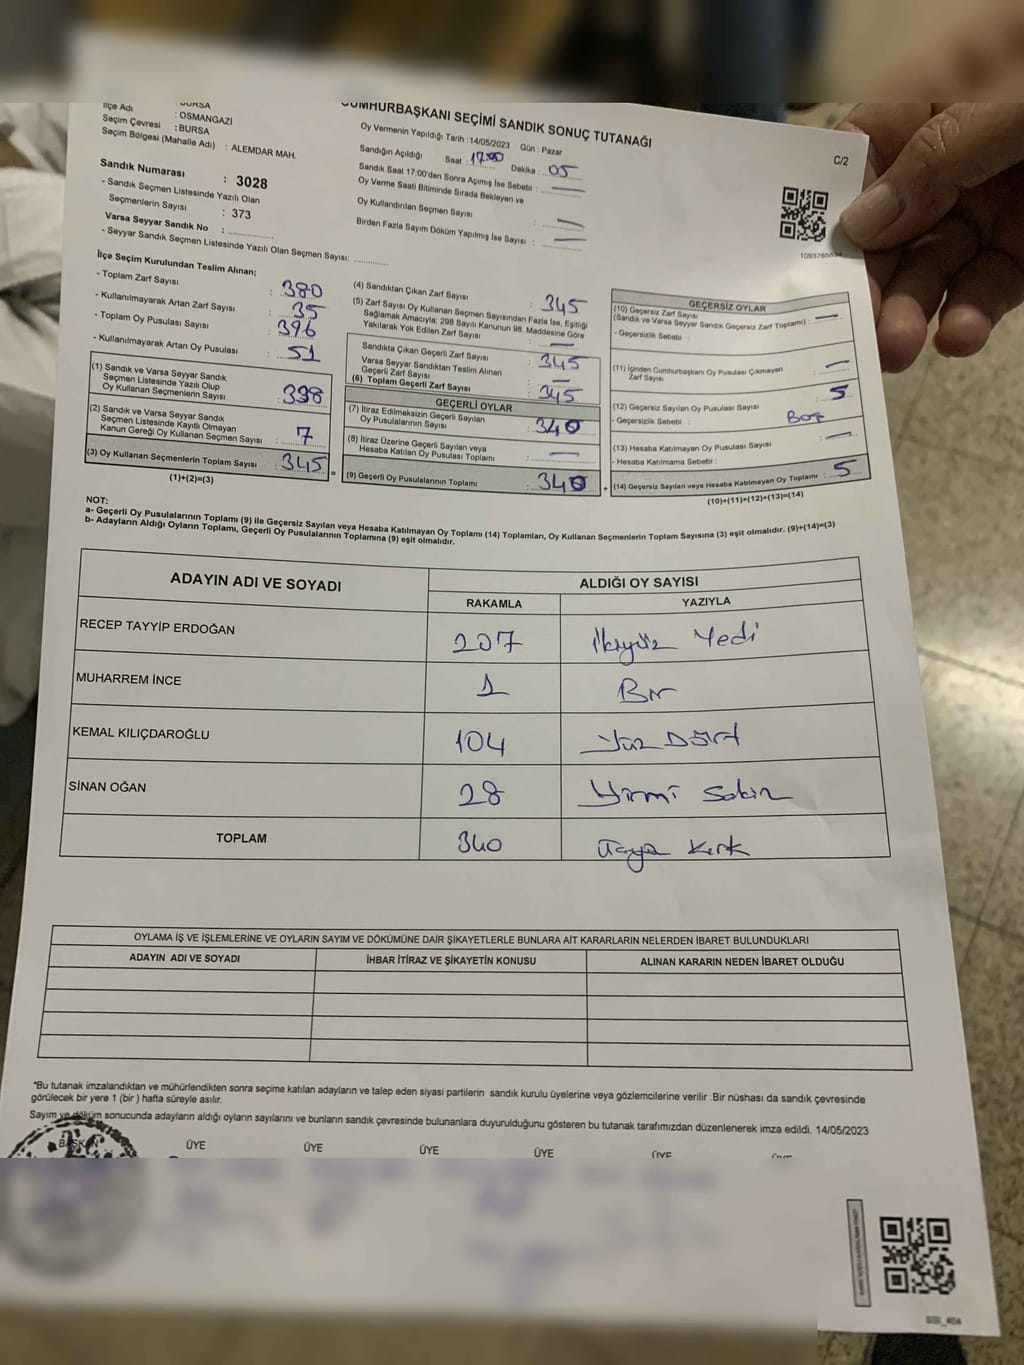 BURSA
CUMHURBAŞKANI SEÇİMİ SANDIK SONUÇ TUTANAĞI
İlçe Adı : OSMANGAZİ
Seçim Çevresi : BURSA
Seçim Bölgesi (Mahalle Adı) : ALEMDAR MAH.
Oy Vermenin Yapıldığı Tarih : 14/05/2023 Gün : Pazar
C/2
Sandığın Açıldığı Saat : 17:00 Dakika : 05
Sandık Saat 17:00'den Sonra Açımış İse Sebebi : —
Oy Verme Saati Bitiminde Sırada Bekleyen ve
Oy Kullandırılan Seçmen Sayısı : —
Birden Fazla Sayım Döküm Yapılmış İse Sayısı : —
Sandık Numarası : 3028
- Sandık Seçmen Listesinde Yazılı Olan
Seçmenlerin Sayısı : 373
Varsa Seyyar Sandık No : ..............
- Seyyar Sandık Seçmen Listesinde Yazılı Olan Seçmen Sayısı: ............
İlçe Seçim Kurulundan Teslim Alınan;
- Toplam Zarf Sayısı : 380
- Kullanılmayarak Artan Zarf Sayısı : 35
- Toplam Oy Pusulası Sayısı : 396
- Kullanılmayarak Artan Oy Pusulası : 51
(1) Sandık ve Varsa Seyyar Sandık
Seçmen Listesinde Yazılı Olup
Oy Kullanan Seçmenlerin Sayısı :
(2) Sandık ve Varsa Seyyar Sandık
Seçmen Listesinde Kayıtlı Olmayan
Kanun Gereği Oy Kullanan Seçmen Sayısı : 7
(3) Oy Kullanan Seçmenlerin Toplam Sayısı : 345
(1)+(2)=(3)
(4) Sandıktan Çıkan Zarf Sayısı : 345
(5) Zarf Sayısı Oy Kullanan Seçmen Sayısından Fazla İse, Eşitliği
Sağlamak Amacıyla; 298 Sayılı Kanunun 98. Maddesine Göre
Yakılarak Yok Edilen Zarf Sayısı : —
Sandıkta Çıkan Geçerli Zarf Sayısı : 345
Varsa Seyyar Sandıktan Teslim Alınan
Geçerli Zarf Sayısı : —
(6) Toplam Geçerli Zarf Sayısı : 345
GEÇERLİ OYLAR
(7) İtiraz Edilmeksizin Geçerli Sayılan
Oy Pusulalarının Sayısı : 340
(8) İtiraz Üzerine Geçerli Sayılan veya
Hesaba Katılan Oy Pusulası Toplamı : —
(9) Geçerli Oy Pusulalarının Toplamı : 340
1093765534
GEÇERSİZ OYLAR
(10) Geçersiz Zarf Sayısı
(Sandık ve Varsa Seyyar Sandık Geçersiz Zarf Toplamı) : —
- Geçersizlik Sebebi :
(11) İçinden Cumhurbaşkanı Oy Pusulası Çıkmayan
Zarf Sayısı : —
(12) Geçersiz Sayılan Oy Pusulası Sayısı : 5
- Geçersizlik Sebebi : Boş
(13) Hesaba Katılmayan Oy Pusulası Sayısı : —
- Hesaba Katılmama Sebebi :
(14) Geçersiz Sayılan veya Hesaba Katılmayan Oy Toplamı : 5
(10)+(11)+(12)+(13)=(14)
NOT:
a- Geçerli Oy Pusulalarının Toplamı (9) ile Geçersiz Sayılan veya Hesaba Katılmayan Oy Toplamı (14) Toplamları, Oy Kullanan Seçmenlerin Toplam Sayısına (3) eşit olmalıdır. (9)+(14)=(3)
b- Adayların Aldığı Oyların Toplamı, Geçerli Oy Pusulalarının Toplamına (9) eşit olmalıdır.
ADAYIN ADI VE SOYADI ALDIĞI OY SAYISI
RAKAMLA YAZIYLA
RECEP TAYYİP ERDOĞAN 207 İkiyüz Yedi
MUHARREM İNCE 1 Bir
KEMAL KILIÇDAROĞLU 104 Yüz Dört
SİNAN OĞAN 28 Yirmi Sekiz
TOPLAM 340 Üçyüz Kırk
OYLAMA İŞ VE İŞLEMLERİNE VE OYLARIN SAYIM VE DÖKÜMÜNE DAİR ŞİKAYETLERLE BUNLARA AİT KARARLARIN NELERDEN İBARET BULUNDUKLARI
ADAYIN ADI VE SOYADI İHBAR İTİRAZ VE ŞİKAYETİN KONUSU ALINAN KARARIN NEDEN İBARET OLDUĞU
*Bu tutanak imzalandıktan ve mühürlendikten sonra seçime katılan adayların ve talep eden siyasi partilerin sandık kurulu üyelerine veya gözlemcilerine verilir .Bir nüshası da sandık çevresinde
görülecek bir yere 1 (bir ) hafta süreyle asılır.
Sayım ve döküm sonucunda adayların aldığı oyların sayılarını ve bunların sandık çevresinde bulunanlara duyurulduğunu gösteren bu tutanak tarafımızdan düzenlenerek imza edildi. 14/05/2023
BAŞKAN ÜYE ÜYE ÜYE ÜYE ÜYE ÜYE